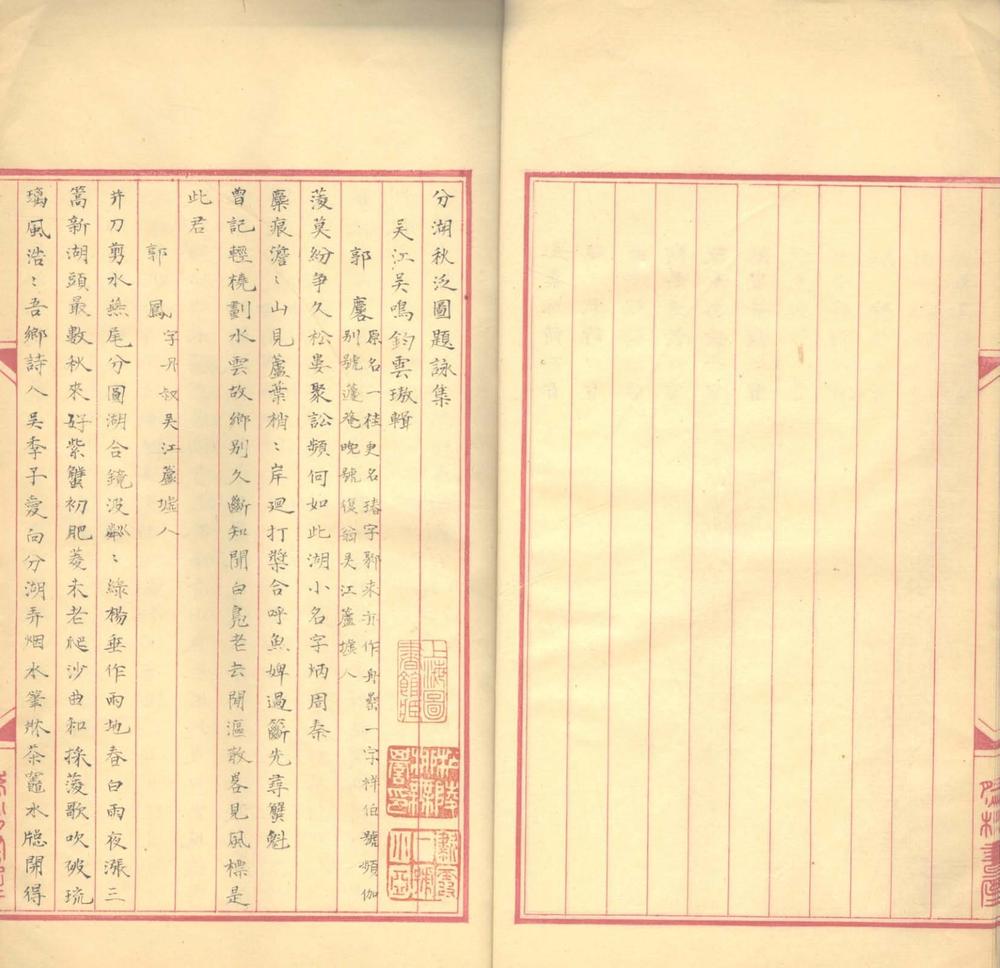 分湖秋泛圖題詠集
吳江吳鳴鈞雲璈輯
郭麐 原名一桂更名瑧字 來亦作舟 一字祥伯號頻伽
別號蘧菴晚號復翁吳江蘆墟人
菠莫紛爭久松婁聚訟頻何如此湖小名字炳周秦
麋痕澹〻山見蘆葉梢〻岸廻打槳合呼魚婢過籪先尋蟹魁
曾記輕橈劃水雲故鄉別久斷知聞白鳧老去閒漚散畧見風標是
此君
郭鳳 字丹叔吳江蘆墟人
并刀剪水燕尾分圓湖合鏡波粼〻綠楊垂作雨地春白雨夜漲三
篙新湖頭最數秋來好紫蟹初肥菱未老爬沙曲和採菠歌吹破琉
璃風浩〻吾鄉詩人吳季子愛向分湖弄烟水筆牀茶竈水牕開得
上海圖書館藏